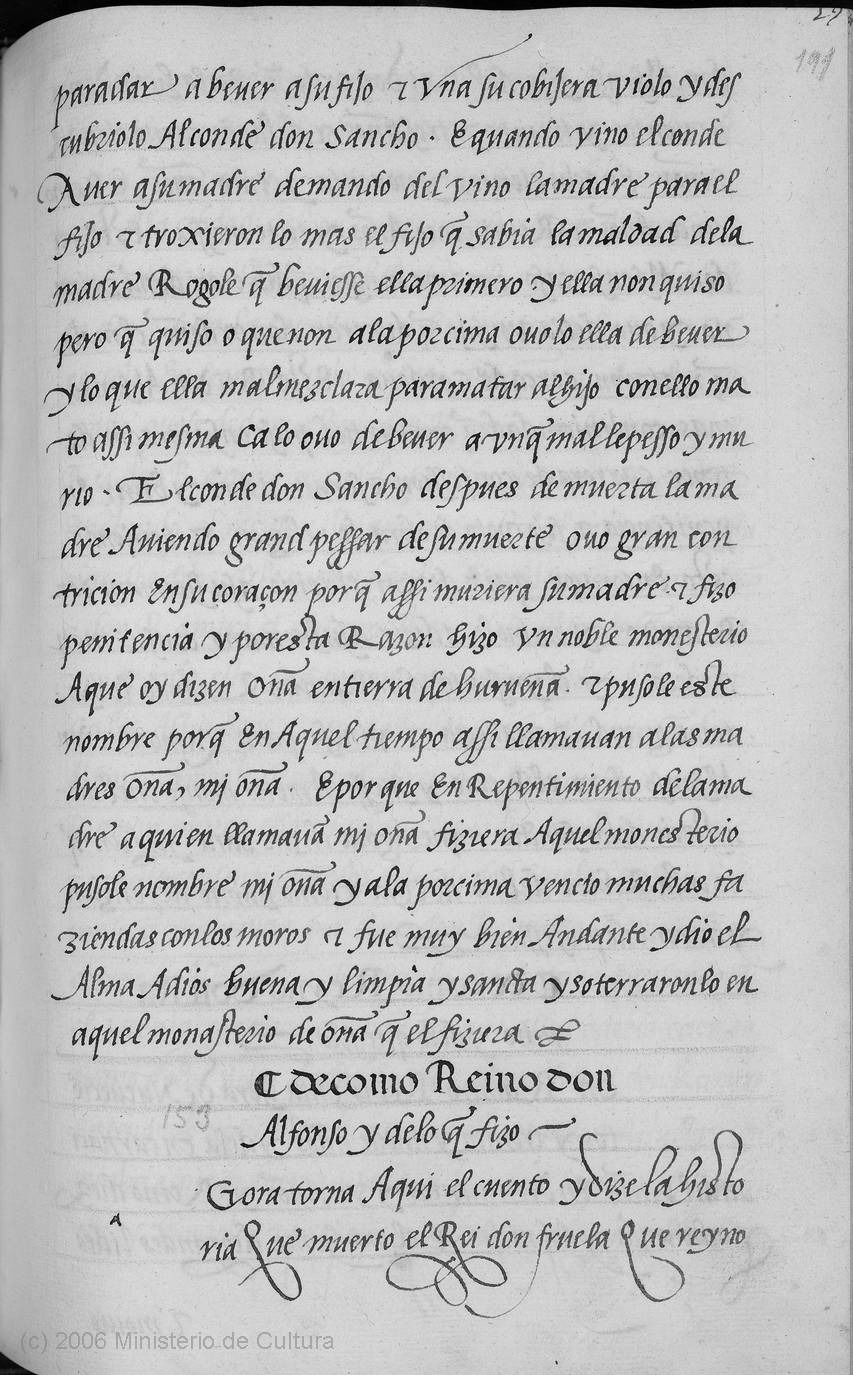 29
199
paradar a bever a su fijo τ vna su cobijera violo y des
cubriolo Al conde don Sancho · E quando vino el conde
A ver a su madre demando del vino la madre para el
fijo τ troxieron lo mas el fijo q̃ sabia la maldad dela
madre Rogole q̃ beviesse ella primero y ella non quiso
pero q̃ quiso o que non ala porcima ovolo ella de bever
y lo que ella malmezclara para matar al hijo con ello ma
to assi mesma Ca lo ovo de bever a vnq̃ mal le pesso y mu
rio · El conde don Sancho despues de muerta la ma
dre Aviendo grand pessar de su muerte ovo gran con
tricion En su coraçon porq̃ assi muriera su madre τ fizo
penitencia y por esta Razon hizo vn noble monesterio
A que oy dizen Oña en tierra de huruena · τ pusole este
nombre porq̃ En Aquel tiempo assi llamavan a las ma
dres oña, mi oña · E por que En Repentimiento dela ma
dre a quien llamavã mi oña fiziera Aquel monesterio
pusole nombre mi oña y ala porcima vencio muchas fa
ziendas con los moros τ fue muy bien Andante y dio el
Alma A dios buena y limpia y sancta y soterraron lo en
aquel monasterio de oña q̃ el fiziera
¶ de como Reino don
153
Alfonso y delo q̃ fizo
Gora torna Aqui el cuento y dize la histo
A
ria Que muerto el Rei don fruela Que reyno
(c) 2006 Ministerio de Cultura